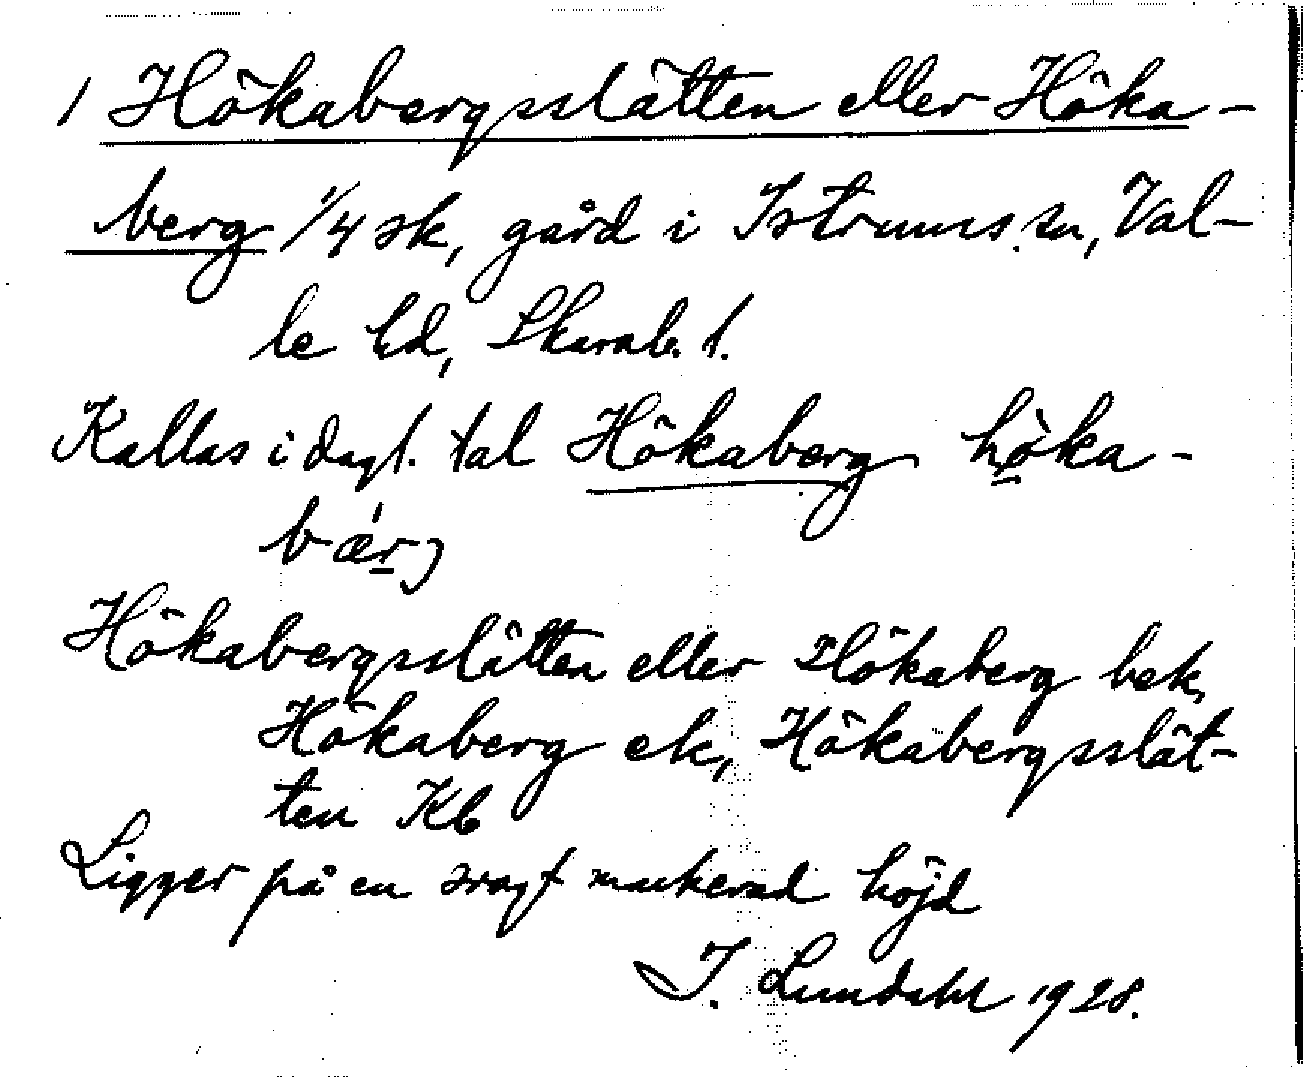 1 Hökabergsslätten eller Höka-
berg 1/4 sk, gård i Istrums sn, Val-
le hd, Skarab. l.
Kallas i dagl. tal Hökaberg hö̀ka-
bǽrj
Hökabergsslätten eller Hökaberg bek,
Hökaberg ek, Hökabergsslät-
ten Kb
Ligger på en svagt markerad höjd
I. Lundahl 1928.